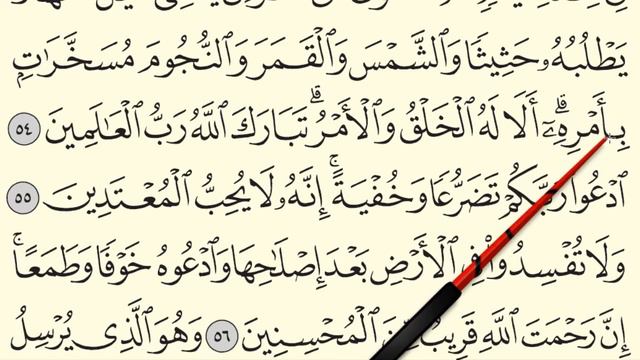 يَطْلُبُهُۥ حَثِيثًا وَٱلشَّمْسَ وَٱلْقَمَرَ وَٱلنُّجُومَ مُسَخَّرَٰتٍۭ
بِأَمْرِهِۦٓ ۗ أَلَا لَهُ ٱلْخَلْقُ وَٱلْأَمْرُ ۗ تَبَارَكَ ٱللَّهُ رَبُّ ٱلْعَٰلَمِينَ ٥٤
ٱدْعُوا۟ رَبَّكُمْ تَضَرُّعًا وَخُفْيَةً ۚ إِنَّهُۥ لَا يُحِبُّ ٱلْمُعْتَدِينَ ٥٥
وَلَا تُفْسِدُوا۟ فِى ٱلْأَرْضِ بَعْدَ إِصْلَٰحِهَا وَٱدْعُوهُ خَوْفًا وَطَمَعًا ۚ
إِنَّ رَحْمَتَ ٱللَّهِ قَرِيبٌ مِّنَ ٱلْمُحْسِنِينَ ٥٦ وَهُوَ ٱلَّذِى يُرْسِلُ